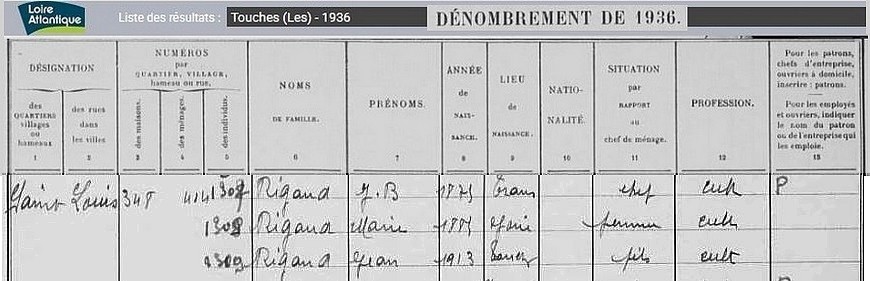 Loire
Atlantique
Liste des résultats : Touches (Les) - 1936
DÉNOMBREMENT DE 1936.
DÉSIGNATION
des QUARTIERS villages ou hameaux
1
des rues dans les villes
2
NUMÉROS
par QUARTIER, VILLAGE, hameau ou rue.
des maisons.
3
des ménages.
4
des individus.
5
NOMS
DE FAMILLE.
6
PRÉNOMS.
7
ANNÉE
de NAISSANCE.
8
LIEU
de NAISSANCE.
9
NATIONALITÉ.
10
SITUATION
par RAPPORT au chef de ménage.
11
PROFESSION.
12
Pour les patrons, chefs d'entreprise, ouvriers à domicile, inscrire : patrons.
Pour les employés et ouvriers, indiquer le nom du patron ou de l'entreprise qui les emploie.
13
Saint Louis 348 414 1307 Rigaud J. B 1875 Trans chef cult P
1308 Rigaud Marie femme cult
1309 Rigaud Jean 1913 fils cult